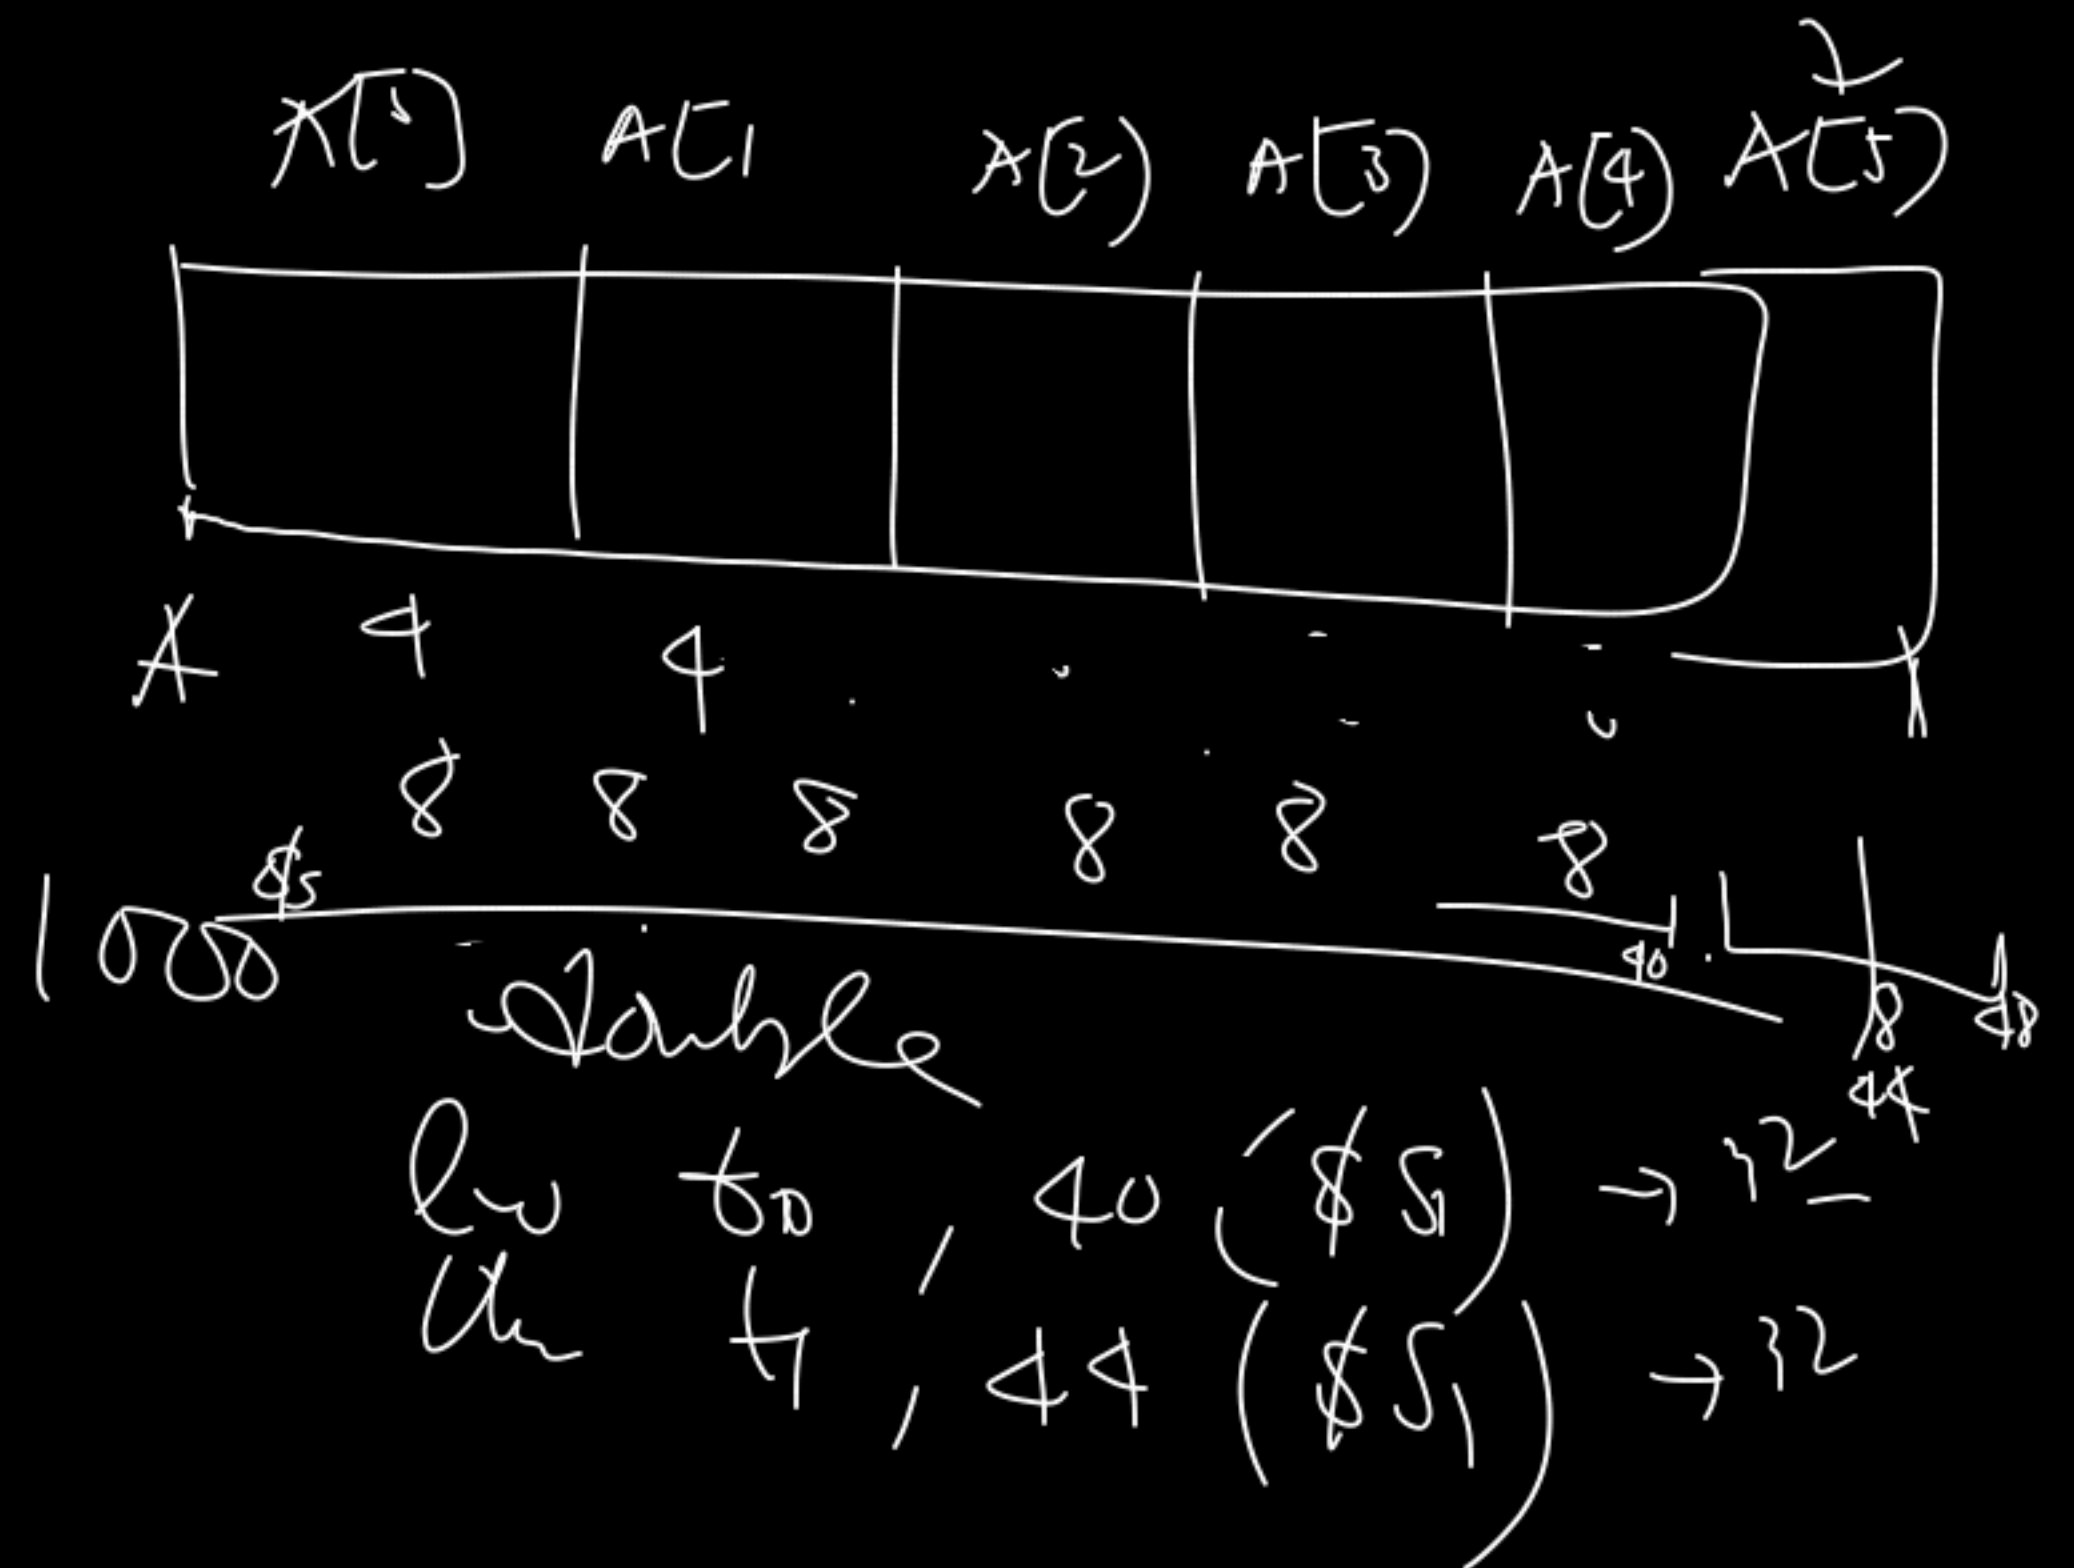 A[0] A[1 A[2] A[3] A[4] A[5]
A 4 4
8 8 8 8 8 8
1000 40 8 48
double 44
lw t0, 40 ($S1) → 32
t1, 44 ($S1) → 32